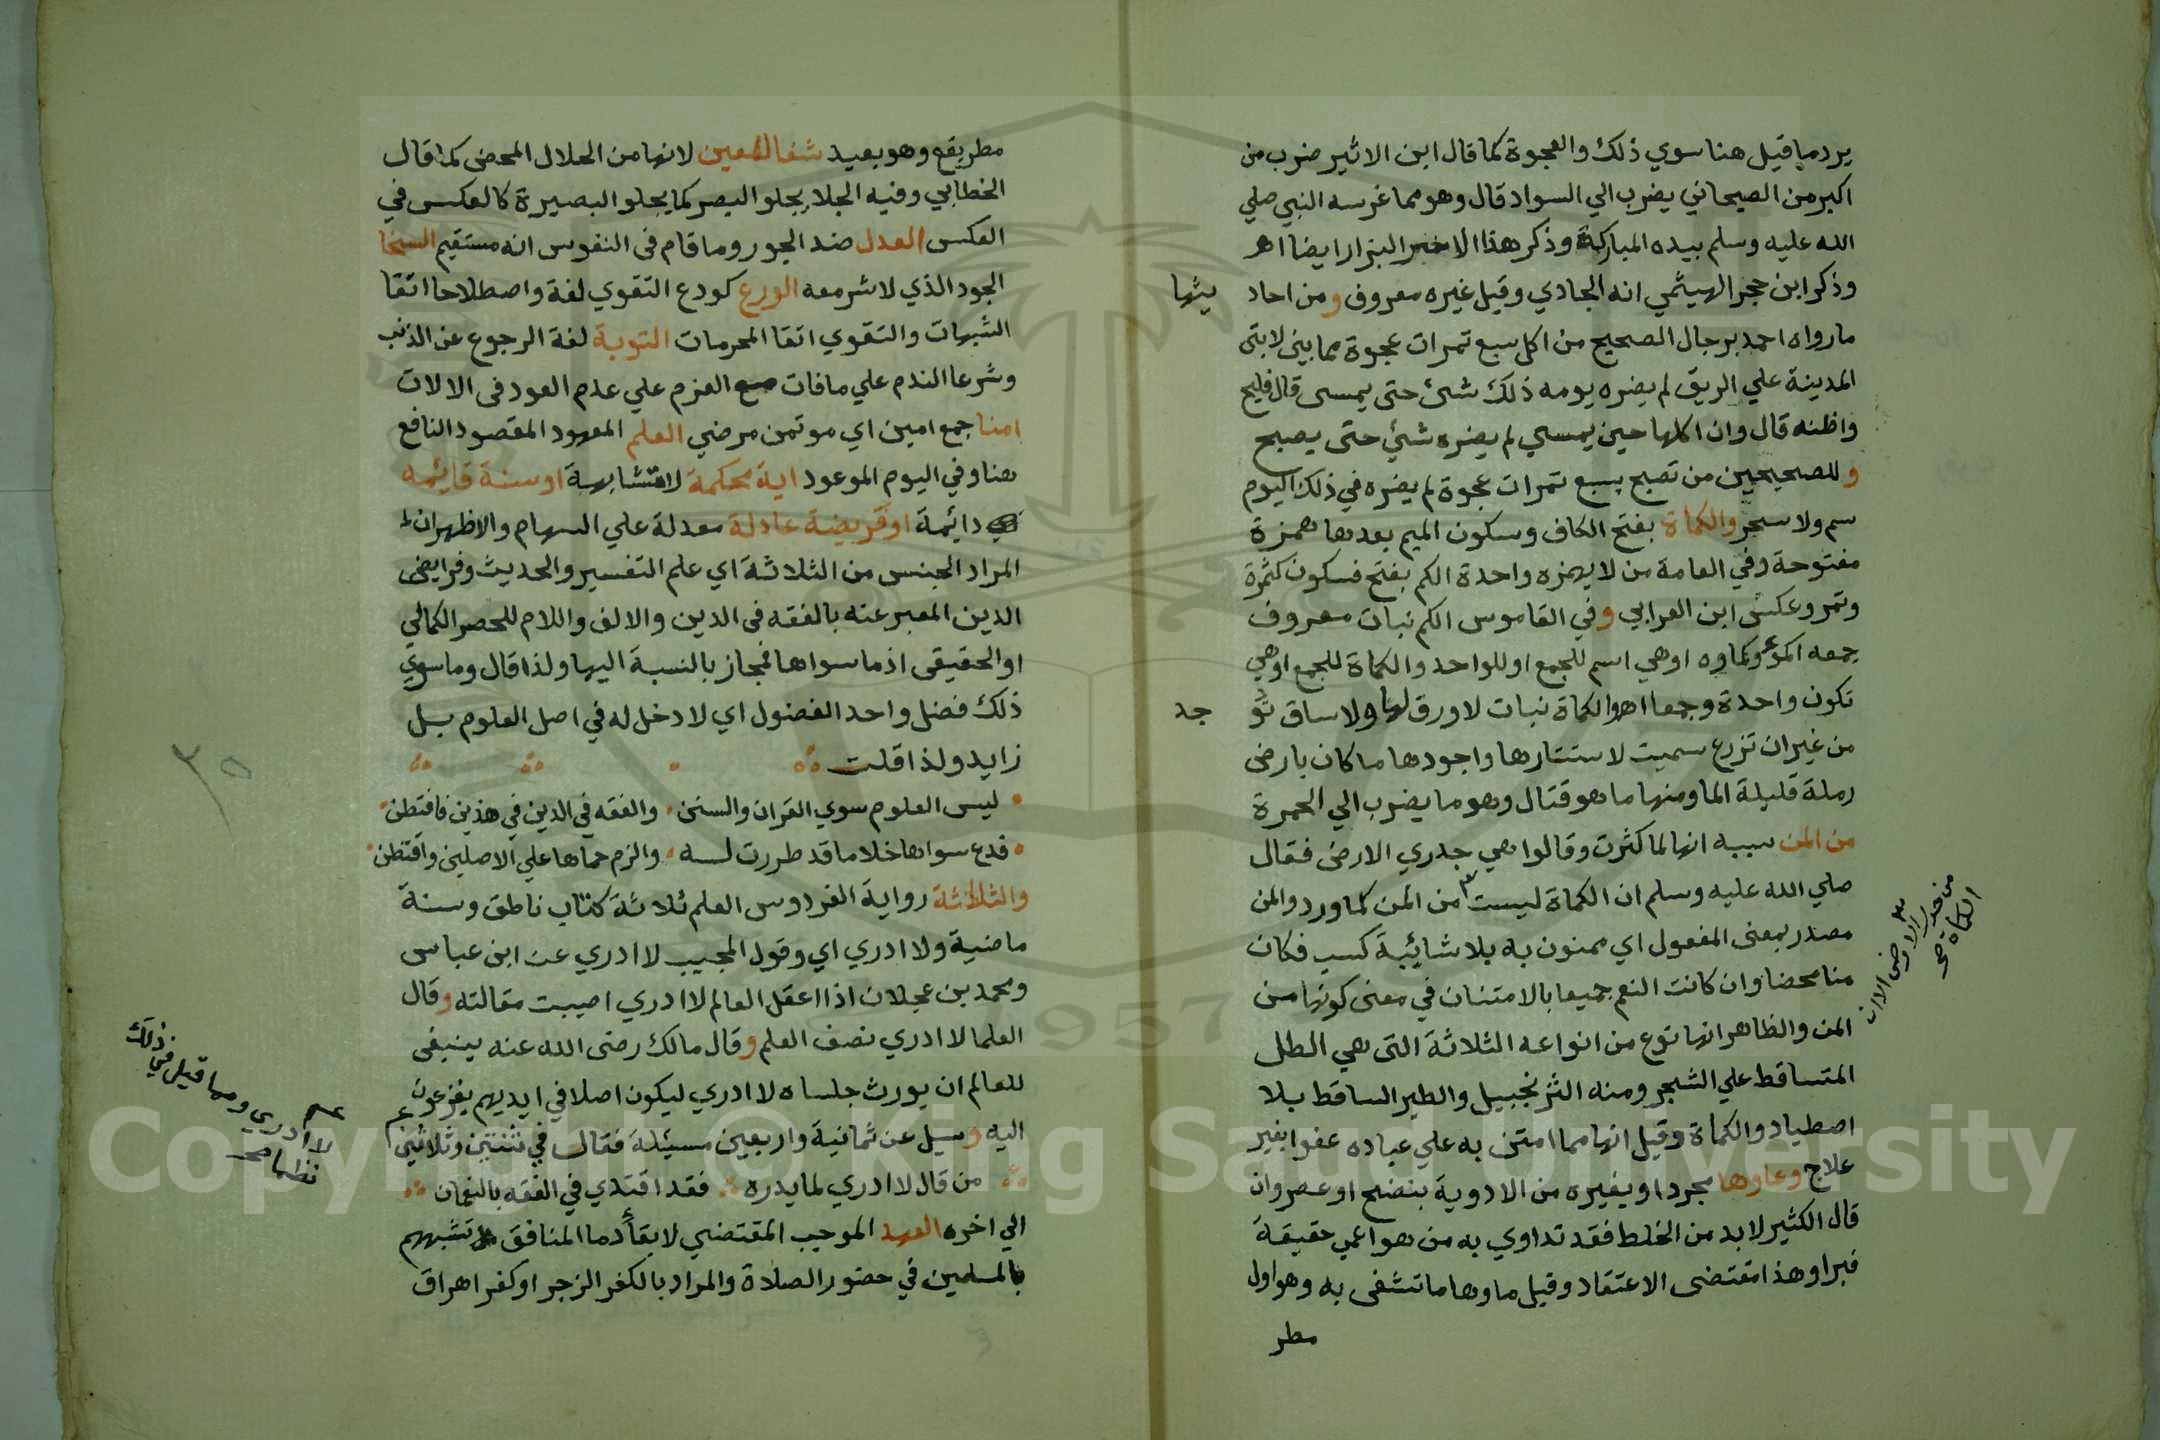 يرد ما قيل هنا سوي ذلك والعجوة كما قال ابن الاثير ضرب من
اكبر من الصيحاني يضرب الي السواد قال وهو مما غرسه النبي صلي
الله عليه وسلم بيده المباركة وذكر هذا الاخير البزار ايضا اهـ
وذكر ابن حجر الهيثمي انه الجادي وقيل غيره معروف ومن احاد يثها
ما رواه احمد برجال الصحيح من اكل سبع تمرات عجوة مما بيني لابتي
المدينة علي الريق لم يضره يومه ذلك شئ حتي يمسي قال فليح
واظنه قال وان اكلها حين يمسي لم يضره شئ حتي يصبح
وللصحيحين من تصبح بسبع تمرات عجوة لم يضره في ذلك اليوم
سم ولا سحر والكماة بفتح الكاف وسكون الميم بعدها همزة
مفتوحة وفي العامة من لا يهمزه واحدة الكم بفتح فسكون كثمرة
وتمر وعكس ابن العرابي وفي القاموس الكم نبات معروف
جمعه اكمؤ وكماوه او هي اسم للجمع او للواحد والكماة للجمع او هي
تكون واحدة وجمعا اهـ والكماة نبات لا ورق لها ولا ساق تو جد
من غير ان تزرع سميت لاستتارها واجودها ما كان بارض
رملة قليلة الما ومنها ما هو قتال وهو ما يضرب الي الحمرة
من المن سببه انها لما كثرت وقالوا هي جدري الارض فقال
صلي الله عليه وسلم ان الكماة ليست من المن كما ورد والمن
من جدري الارض الا ان
الكماة صح
مصدر بمعني المفعول اي ممنون به بلا شائبة كسب فكان
منا محضا وان كانت النعم جميعا بالامتنان في معني كونها من
المن والظاهر انها نوع من انواعه الثلاثة التي هي الطل
المتساقط علي الشجر ومنه الترنجبيل والطير الساقط بلا
اصطياد والكماة وقيل انها مما امتن به علي عباده عفوا بغير
علاج وعاوها مجردا وبغيره من الادوية بنضح او عصر وان
قال الكثير لابد من الخلط فقد تداوي به من هو اعمي حقيقة
فبرا وهذا مقتضي الاعتقاد وقيل ماوها ما تشفي به وهو اول
مطر
مطر يقع وهو بعيد شفا للعين لانها من الحلال المحض كما قال
الخطابي وفيه الجلا يجلو البصر كما يجلو البصيرة كالعكس في
العكس العدل ضد الجور وما قام في النفوس انه مستقيم السخا
الجود الذي لا شر معه الورع كودع التقوي لغة واصطلاحا اتقا
الشبهات والتقوي اتقا المحرمات التوبة لغة الرجوع عن الذنب
وشرعا الندم علي ما فات مع العزم علي عدم العود في الالات
امنا جمع امين اي موتمن مرضي العلم المعهود المقصود النافع
هنا وفي اليوم الموعود اية محكمة لا متشابهة او سنة قايمه
دائمة او فريضة عادلة معدلة علي السهام والاظهر ان
المراد الجنس من الثلاثة اي علم التفسير والحديث وفرايض
الدين المعبر عنه بالفقه في الدين والالف واللام للحصر الكمالي
او الحقيقي اذ ما سواها مجاز بالنسبة اليها ولذا قال وما سوي
ذلك فضل واحد الفضول اي لا دخل له في اصل العلوم بل
زايد ولذا قلت
ليس العلوم سوي القران والسنن والفقه في الدين في هذين فافتطن
فدع سواها خلا ما قد طررت لسه والزم حماها علي الاصلين واقتطن
والثلاثة رواية الفردوس العلم ثلاثة كتاب ناطق وسنة
ماضية ولا ادري اي وقول المجيب لا ادري عن ابن عباس
ومحمد بن عجلان اذا اعقل العالم لا ادري اصيبت مقالته وقال
العلما لا ادري نصف العلم وقال مالك رضي الله عنه ينبغي
للعالم ان يورث جلساه لا ادري ليكون اصلا في ايديهم يفزعون
اليه وسيل عن ثمانية واربعين مسئلة فقال في ثنتين وثلاثين
لا ادري ومما قيل في ذلك
نظما صح
من قال لا ادري لما يدره فقد اقتدي في الفقه بالنعمان
الي اخره العهد الموجب المقتضي لابقا دما المنافق تشبههم
بالمسلمين في حضور الصلاة والمراد بالكفر الزجر او كفر اهراق
٣٥
Copyright © King Saud University
1957